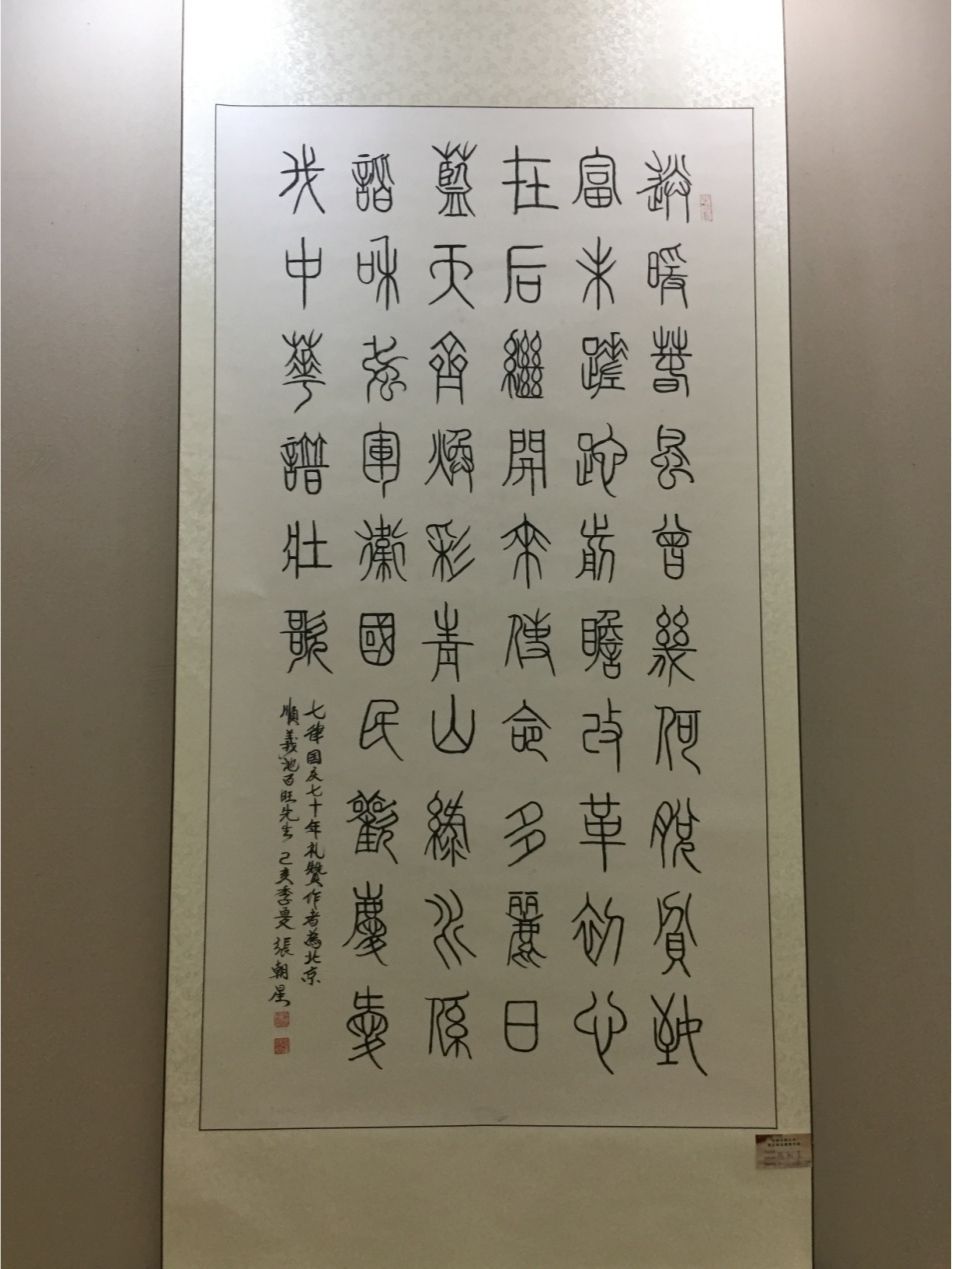 送暖春風曾幾何脫貧致
富未蹉跎前瞻改革初心
在后繼開來使命多麗日
藍天齊煥彩青山綠水係
諧和強軍衛國民歡慶愛
我中華譜壯歌
七律国庆七十年礼贊作者為北京
順義池百旺先生己亥季夏張朝星